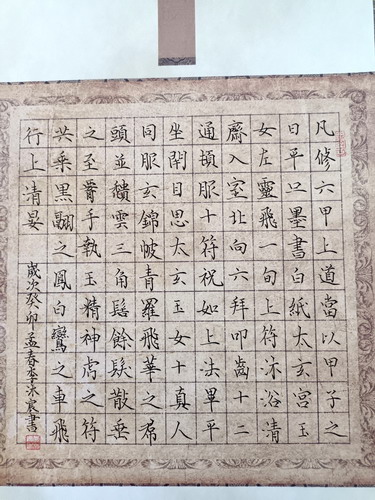 凡修六甲上道當以甲子之
日平旦墨書白紙太玄宮玉
女左靈飛一旬上符沐浴清
齋入室北向六拜叩齒十二
通頓服十符祝如上法畢平
坐閉目思太玄玉女十真人
同服玄錦帔青羅飛華之帬
頭並頹雲三角髻餘髮散垂
之至膂手執玉精神虎之符
共乘黑翮之鳳白鸞之車飛
行上清晏
歲次癸卯孟春李宸書